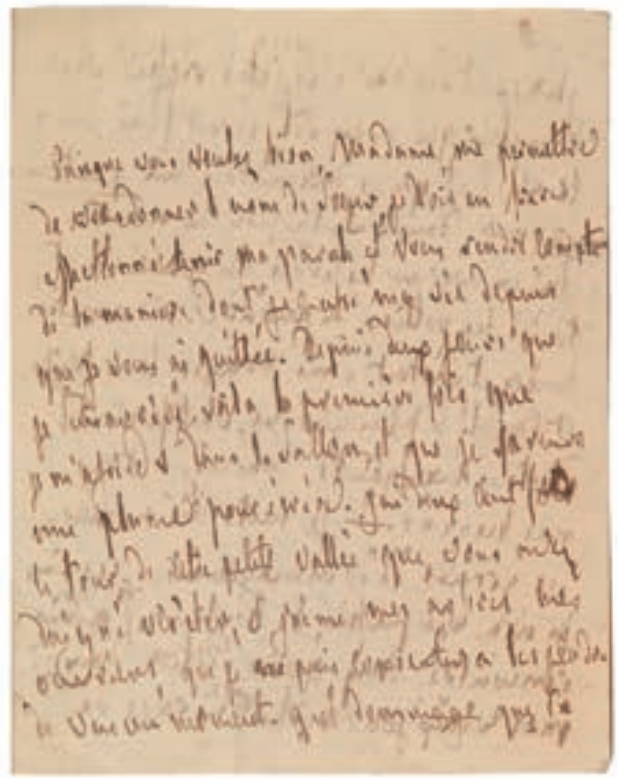 Puisque vous voulez bien, Madame, me permettre
de vous donner le nom de Soeur, je dois en frère
affectionné tenir ma parole et vous rendre compte
de la maniere dont je passe ma vie depuis
que je vous ai quittée. Depuis deux jours que
je voila la premiere fois que
je m'assieds dans le vallon, et que je
une plume pour écrire. J'ai deux cent fois
le tour de cette petite vallée que vous avez
daigné visiter, et j'aime mes
que je ne puis à les perdre
de vue un moment. quel dommage que